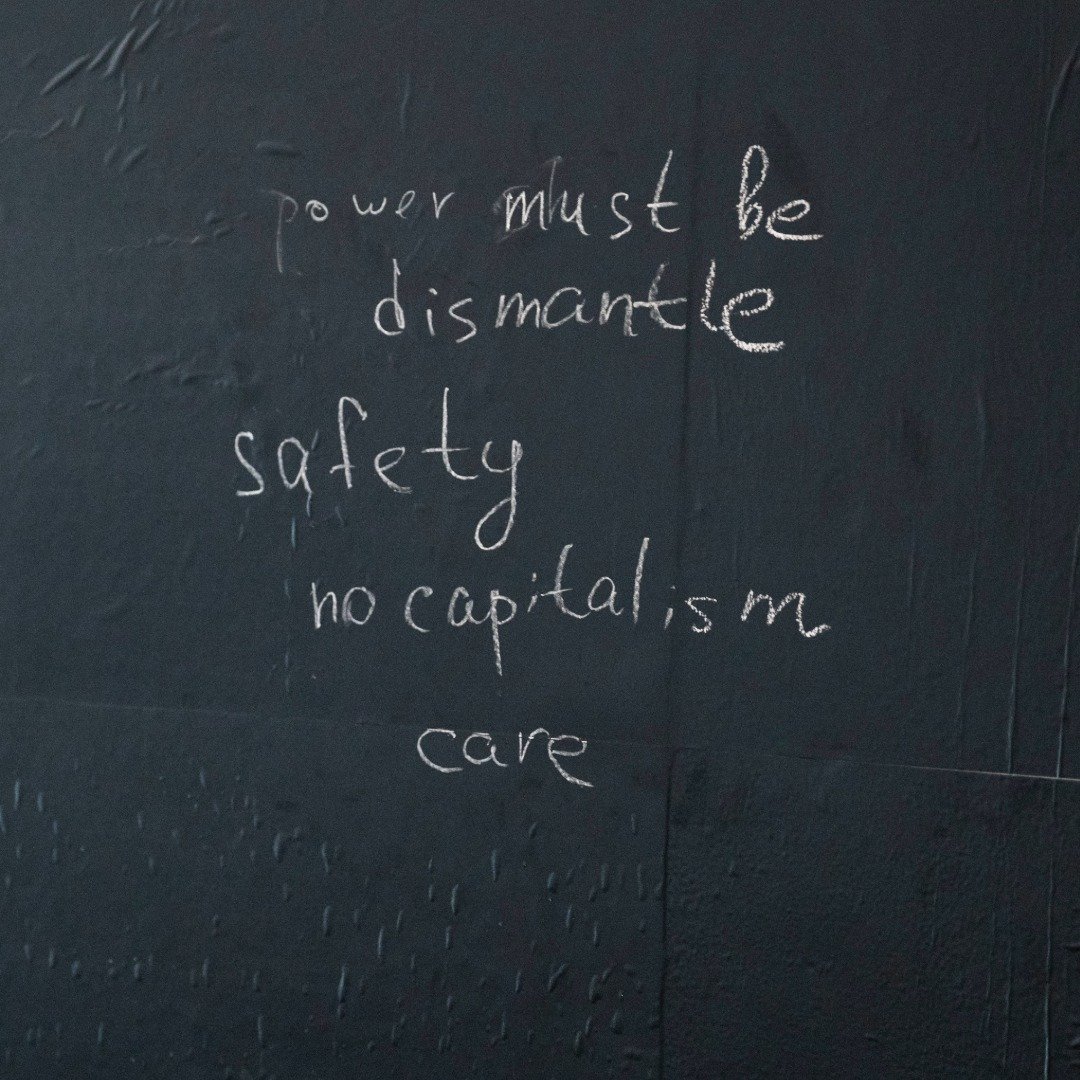 power must be
dismantle
safety
no capitalism
care